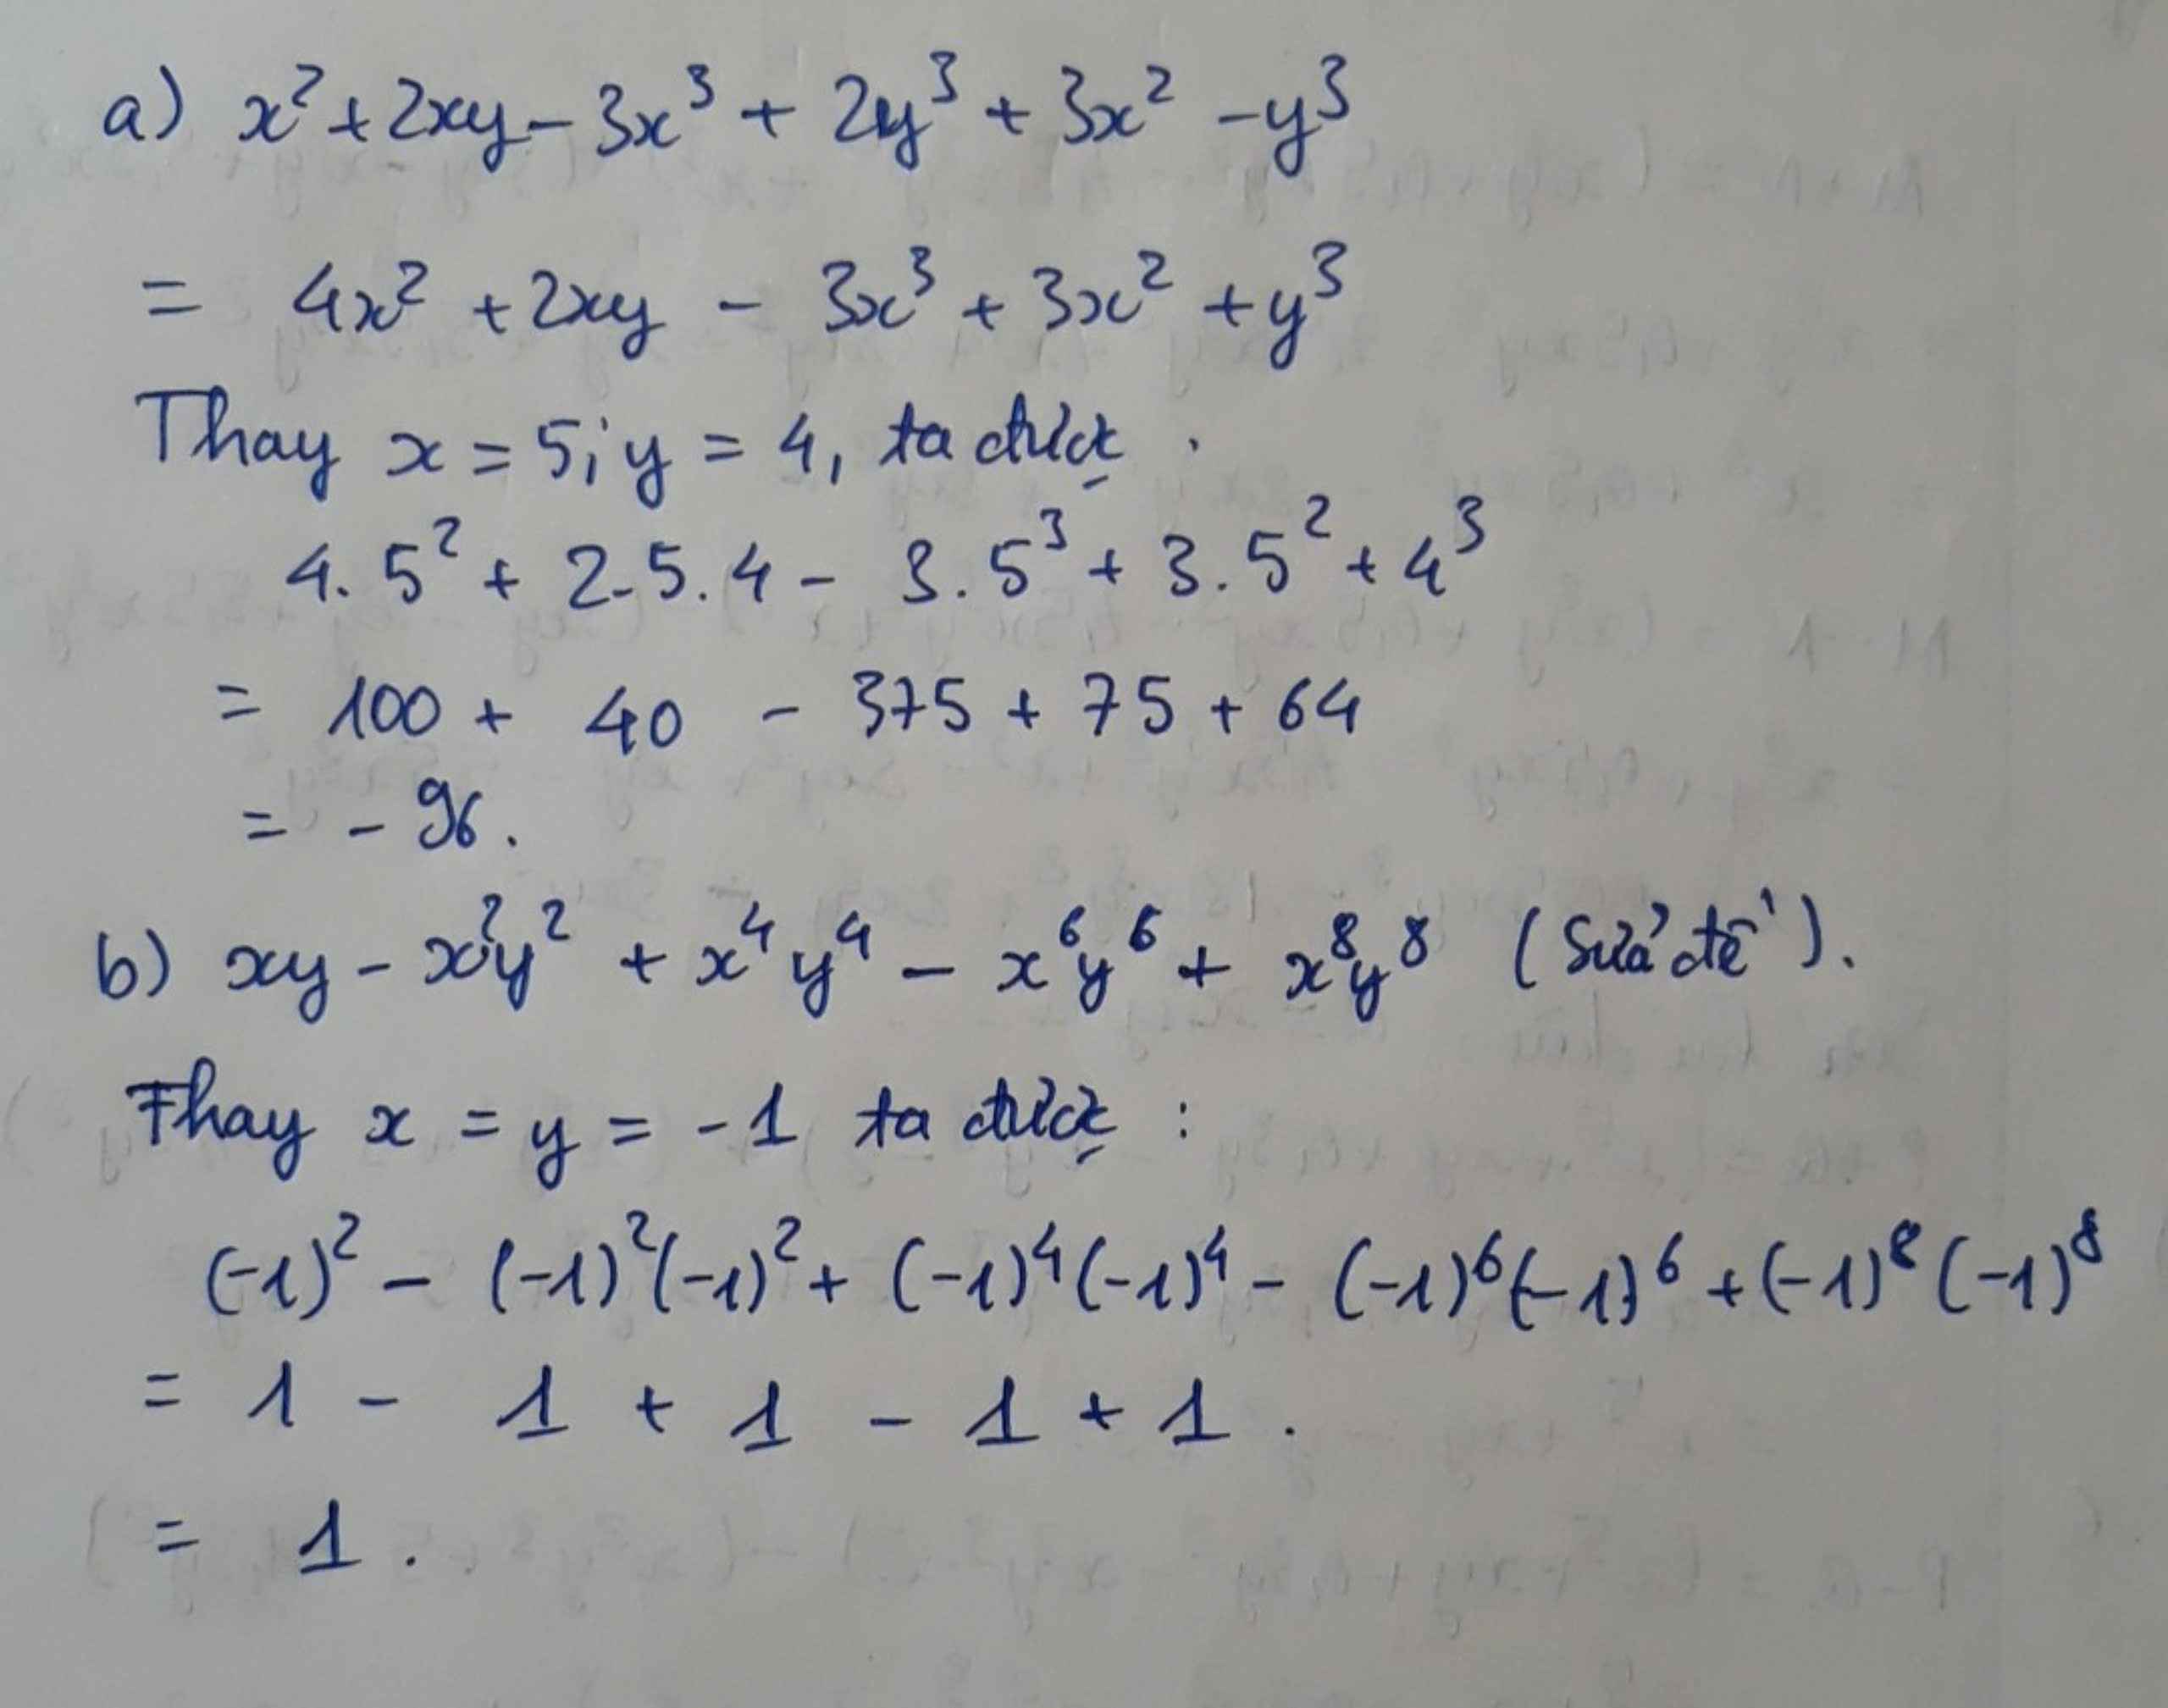 a) x² + 2xy - 3x³ + 2y³ + 3x² - y³
= 4x² + 2xy - 3x³ + 3x² + y³
Thay x = 5; y = 4, ta được .
4. 5² + 2.5.4 - 3.5³ + 3.5² + 4³
= 100 + 40 - 375 + 75 + 64
= - 96.
b) xy - x²y² + x⁴y⁴ - x⁶y⁶ + x⁸y⁸ (Sửa đề).
Thay x = y = -1 ta được :
(-1)² - (-1)²(-1)² + (-1)⁴(-1)⁴ - (-1)⁶(-1)⁶ + (-1)⁸(-1)⁸
= 1 - 1 + 1 - 1 + 1 .
= 1 .